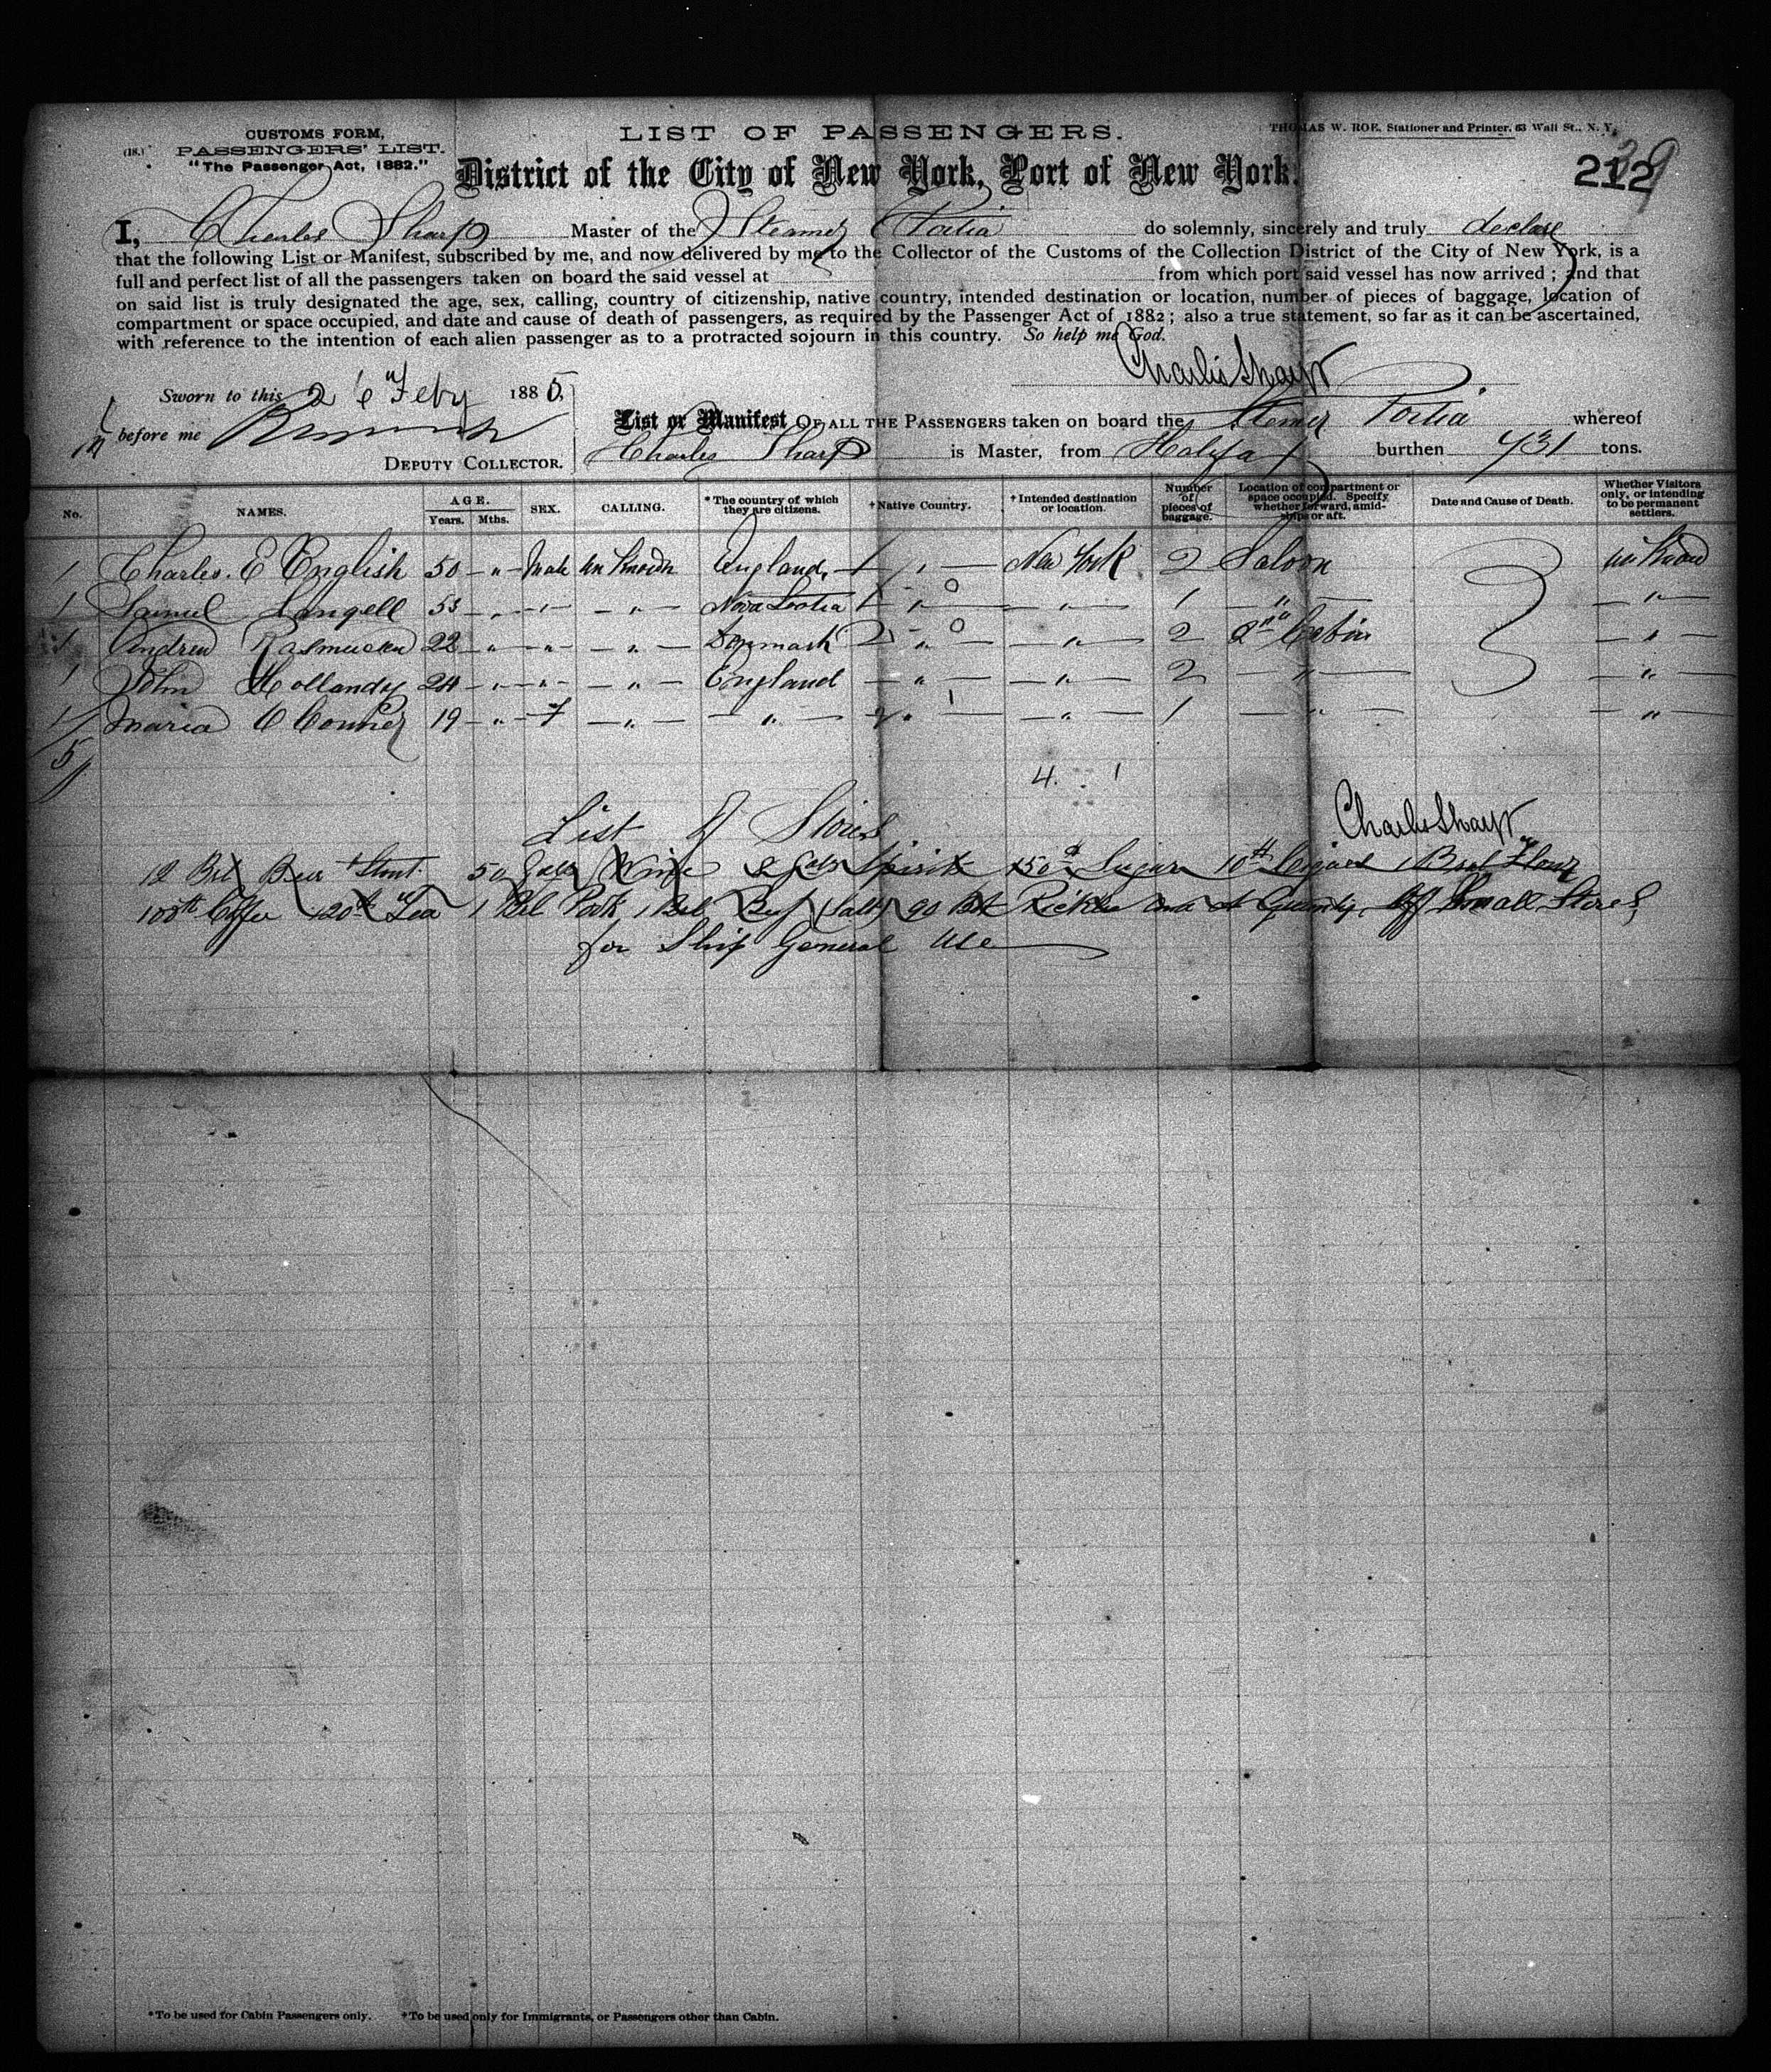 CUSTOMS FORM,
(18.) PASSENGERS' LIST.
"The Passenger Act, 1882."
LIST OF PASSENGERS.
THOMAS W. ROE, Stationer and Printer, 53 Wall St., N. Y.
District of the City of New York, Port of New York.
212
I, Charles Sharp Master of the Steamer Portia do solemnly, sincerely and truly declare
that the following List or Manifest, subscribed by me, and now delivered by me to the Collector of the Customs of the Collection District of the City of New York, is a
full and perfect list of all the passengers taken on board the said vessel at from which port said vessel has now arrived; and that
on said list is truly designated the age, sex, calling, country of citizenship, native country, intended destination or location, number of pieces of baggage, location of
compartment or space occupied, and date and cause of death of passengers, as required by the Passenger Act of 1882; also a true statement, so far as it can be ascertained,
with reference to the intention of each alien passenger as to a protracted sojourn in this country. So help me God.
Charles Sharp
Sworn to this 26 Feby 1885,
before me
DEPUTY COLLECTOR.
List or Manifest OF ALL THE PASSENGERS taken on board the Stemer Portia whereof
Charles Sharp is Master, from Halifax burthen 731 tons.
No. NAMES. AGE. Years. Mths. SEX. CALLING. *The country of which they are citizens. †Native Country. †Intended destination or location. Number of pieces of baggage. Location of compartment or space occupied. Specify whether forward, amidships or aft. Date and Cause of Death. Whether Visitors only, or intending to be permanent settlers.
1 Charles. E English 50 - " - Male un Known England, New York 2 Saloon un Known
1 Samuel Langell 53 - " - " - " - Nova Scotia - " - " - 1 - " - " -
1 Andrew Rasmucen 22 - " - " - " - Denmark - " - " - 2 2nd Cabin - " -
1 John Hollandy 24 - " - " - " - England - " - " - 2 - " - " -
1 Maria O Conner 19 - " - F - " - " - " - " - 1 - " - " -
5
4. 1
Charles Sharp
List of Stores
12 Brl Beer + Stout 50 Galls Wine Galls Spirits 150 # Sugar 10 # Cigars 1 Brel Flour
100 # Coffee 120 # Tea 1 Brl Pork, 1 Brl Beef (Salt) 90 Pickles and A Quantity Off Small Stores
for Ship General Use
*To be used for Cabin Passengers only. †To be used only for Immigrants, or Passengers other than Cabin.